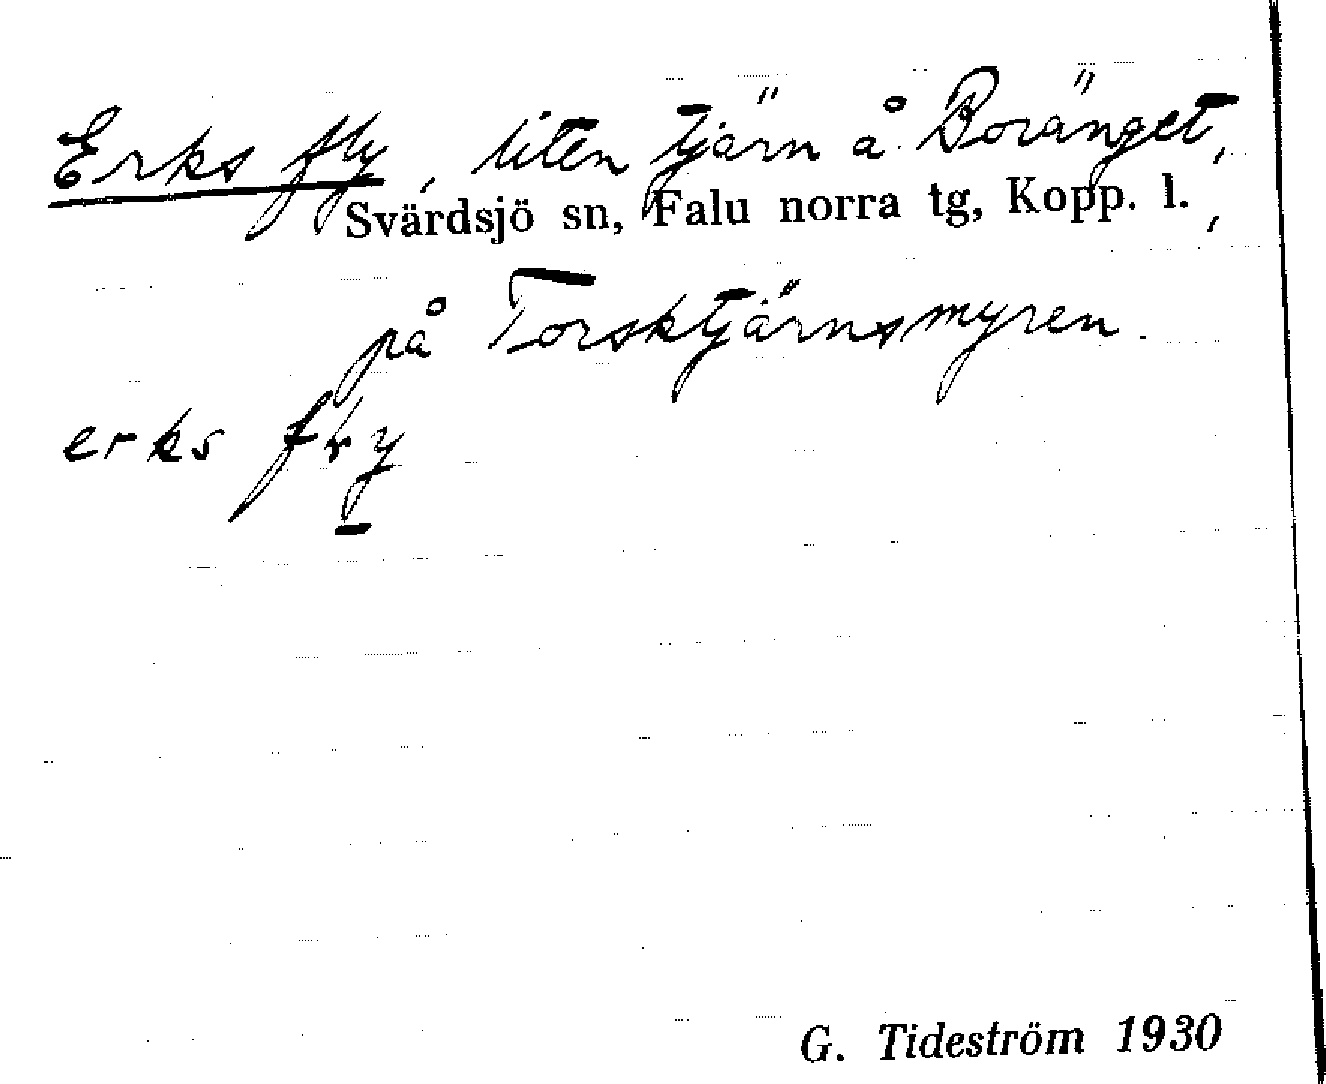 Erks fly, liten tjärn å Boränget,
Svärdsjö sn, Falu norra tg, Kopp. l.,
på Torsktjärnsmyren.
erks fły
G. Tideström 1930